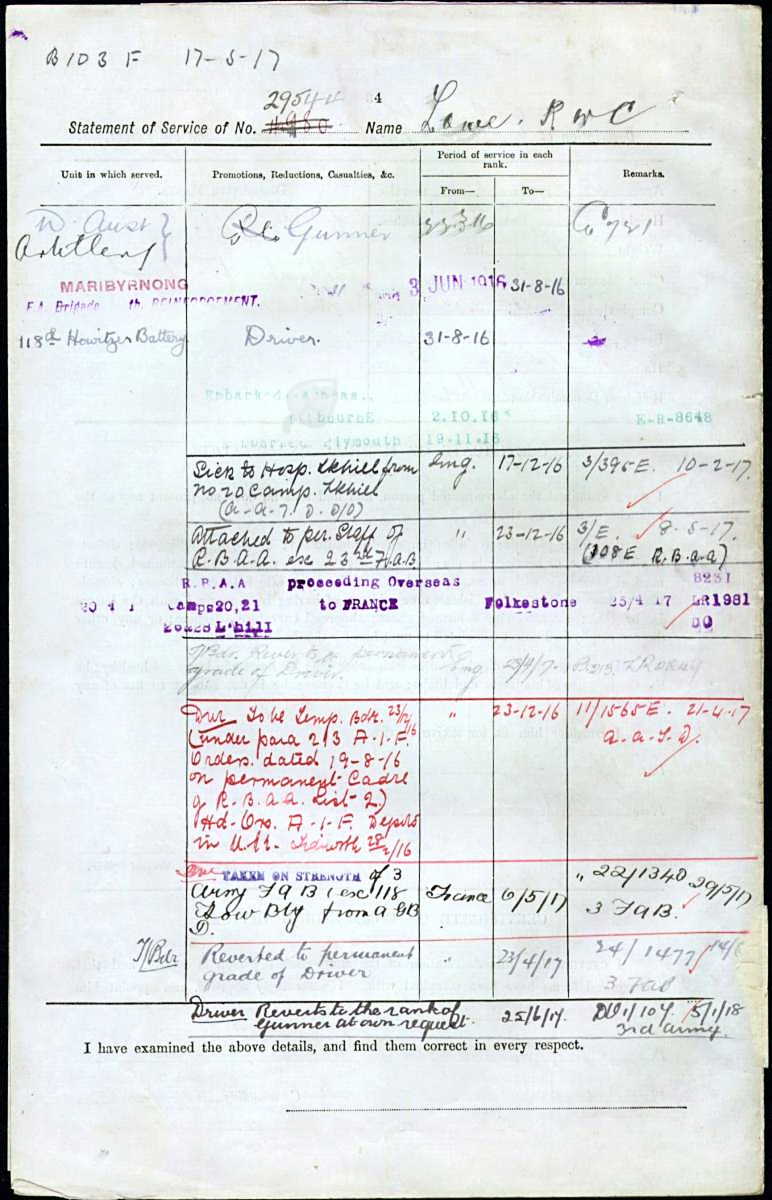 B103 F 17-5-17
29544 4
Statement of Service of No. Name Lowe. R W C
Unit in which served. Promotions, Reductions, Casualties, &c. Period of service in each rank. Remarks.
From— To—
Artillery Gunner
MARIBYRNONG 3 JUN 1916 31-8-16
F.A. Brigade th. REINFORCEMENT.
118th Howitzer Battery Driver. 31-8-16
2.10.16 E-R-8648
Plymouth 19.11.16
Sick to Hosp. from Eng. 17-12-16 3/396 E. 10-2-17.
No 20 Camp.
Attached to per. Staff of " 23-12-16 3/E. 8-5-17.
R.B.A.A. ex 23rd F.A.B (108E R.B.a.a)
R.P.A.A proceeding Overseas 8231
20 4 1 Camps20,21 to FRANCE Folkestone 25/4 17 LR1981
L'hill DO
T/Bdr. Reverts to permanent Eng
grade of Driver.
Dvr To be Temp. Bdr. " 23-12-16 11/1565 E. 21-4-17
(under para 213 A.I.F.
Orders. dated 19-8-16
on permanent Cadre
of R.B.a.a. List 2)
Hd-Qrs. A.I.F. Depots
in U.K.
TAKEN ON STRENGTH of 3 " 22/1340 29/5/17
Army F a B (ex 118 France 6/5/17 3 F a B.
How Bty from a G B
D.
T/Bdr Reverted to permanent " 23/4/17 24/1477 14/6
grade of Driver 3 Fab
Driver Reverts to the rank of 25/6/17. DO1/104. 5/1/18
Gunner at own request. 3rd Army.
I have examined the above details, and find them correct in every respect.